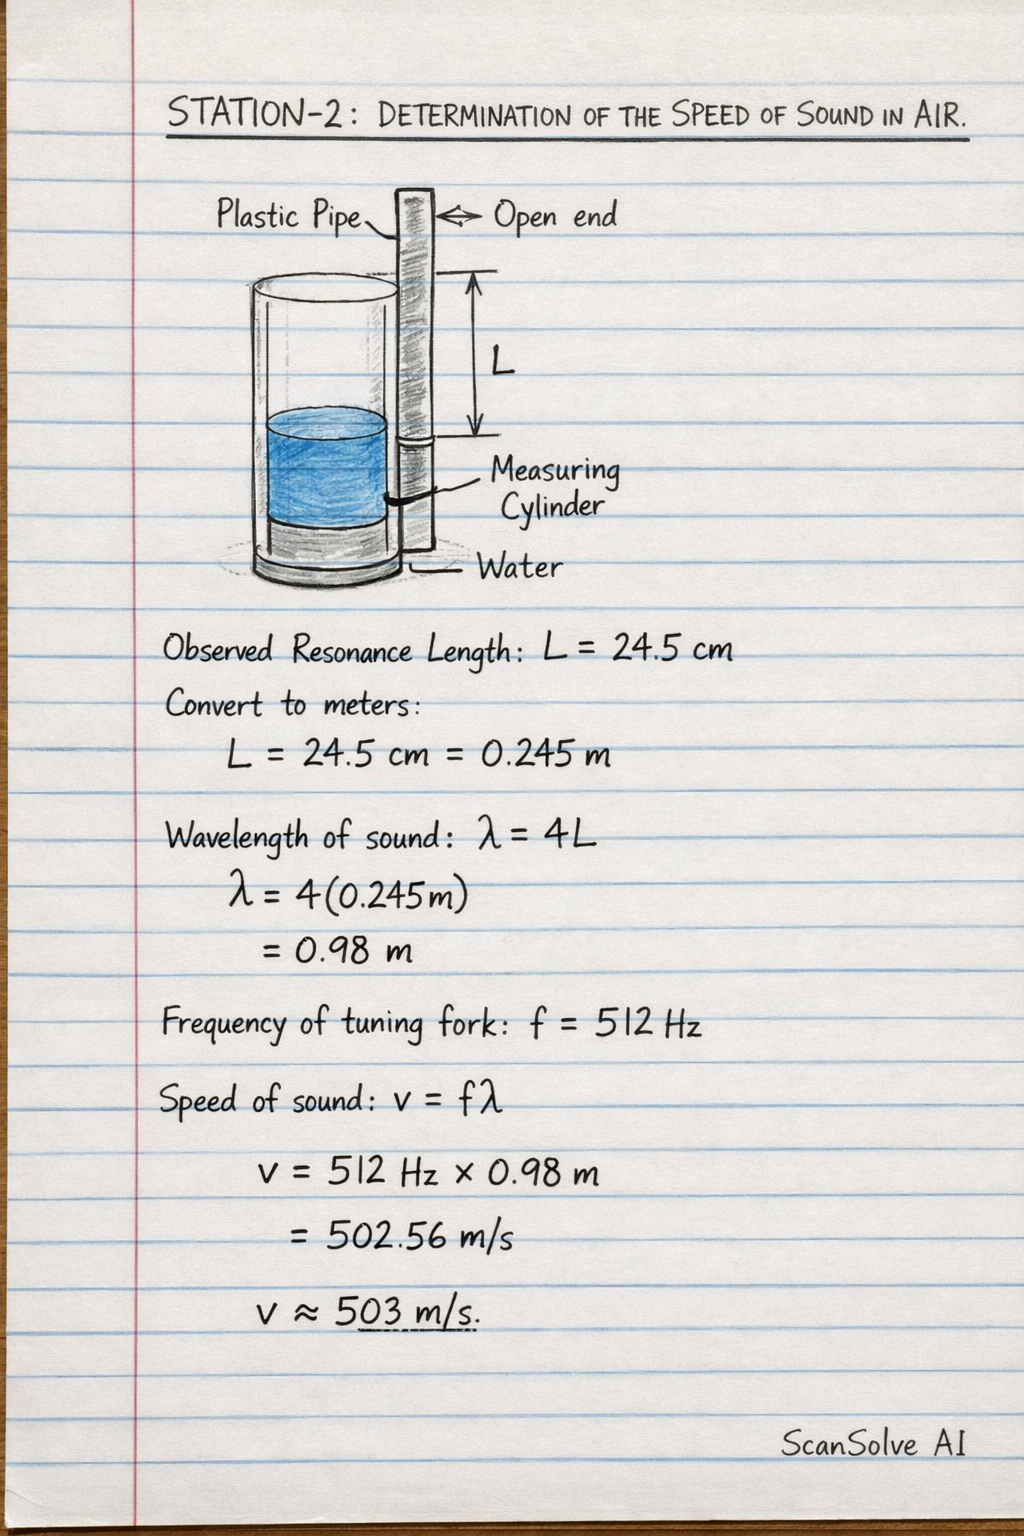 STATION-2: DETERMINATION OF THE SPEED OF SOUND IN AIR.
Plastic Pipe
Open end
L
Measuring
Cylinder
Water
Observed Resonance Length: L = 24.5 cm
Convert to meters:
L = 24.5 cm = 0.245 m
Wavelength of sound: λ = 4L
λ = 4(0.245m)
= 0.98 m
Frequency of tuning fork: f = 512 Hz
Speed of sound: v = fλ
v = 512 Hz × 0.98 m
= 502.56 m/s
v ≈ 503 m/s.
ScanSolve AI